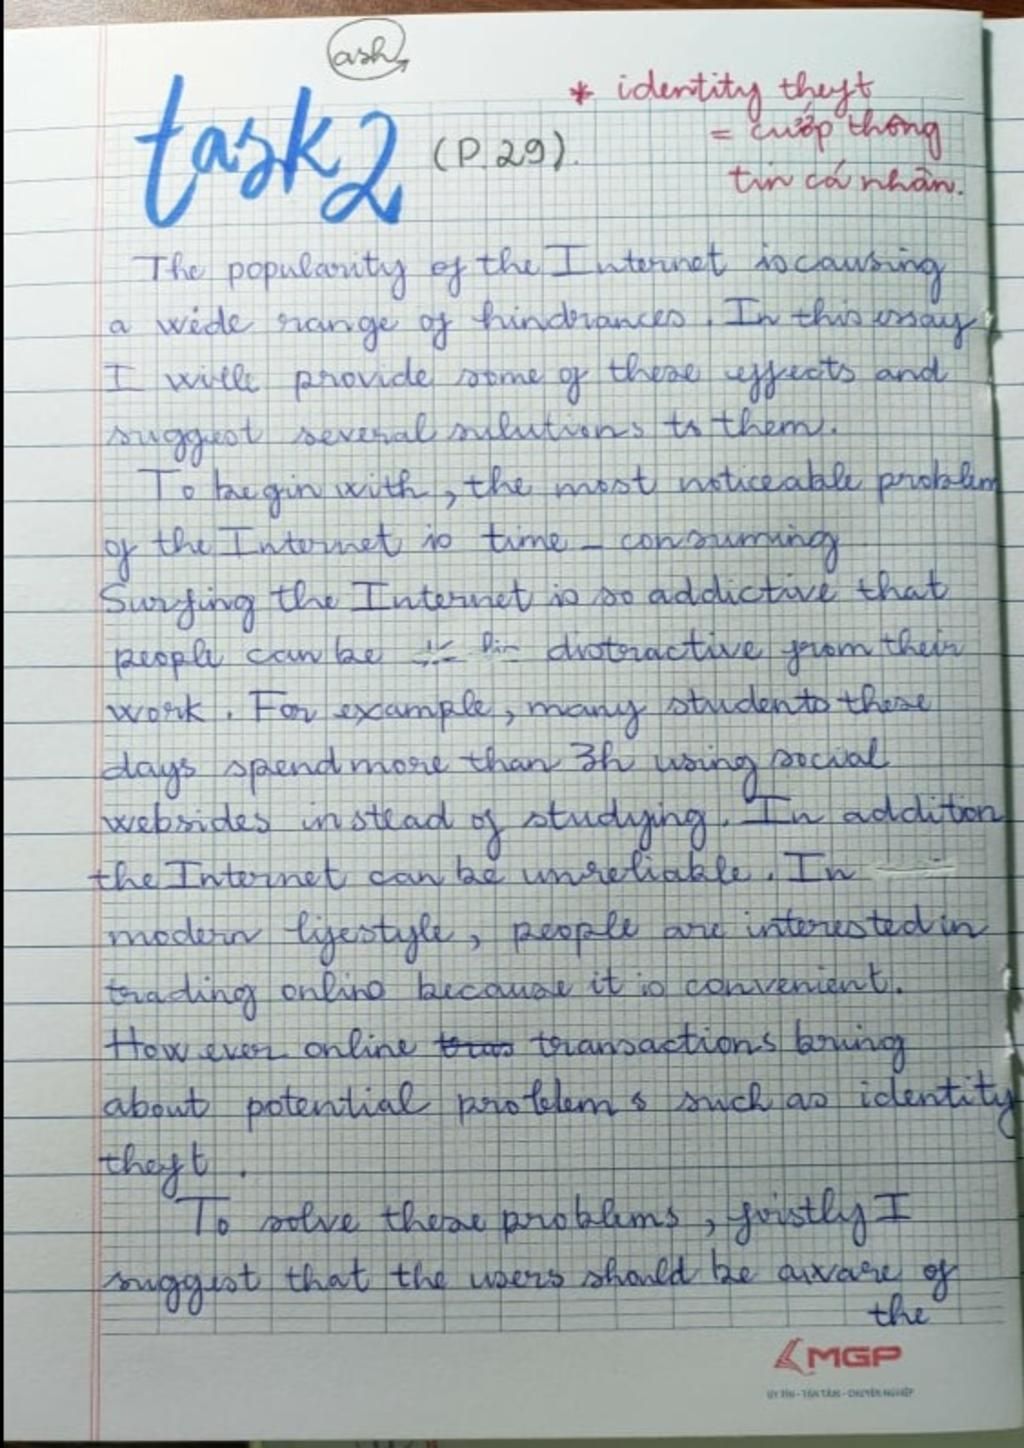 ash
task 2 (P.29).
* identity theft
= cướp thông
tin cá nhân.
The popularity of the Internet is causing
a wide range of hindrances. In this essay
I will provide some of these effects and
suggest several solutions to them.
To begin with, the most noticeable problem
of the Internet is time - consuming
Surfing the Internet is so addictive that
people can be distractive from their
work. For example, many students these
days spend more than 3h using social
websides instead of studying. In addition
the Internet can be unreliable. In
modern lifestyle, people are interested in
trading online because it is convenient.
However online tras transactions bring
about potential problems such as identity
theft.
To solve these problems, firstly I
suggest that the users should be aware of
the
MGP
UY TÍN - TẬN TÂM - CHUYÊN NGHIỆP